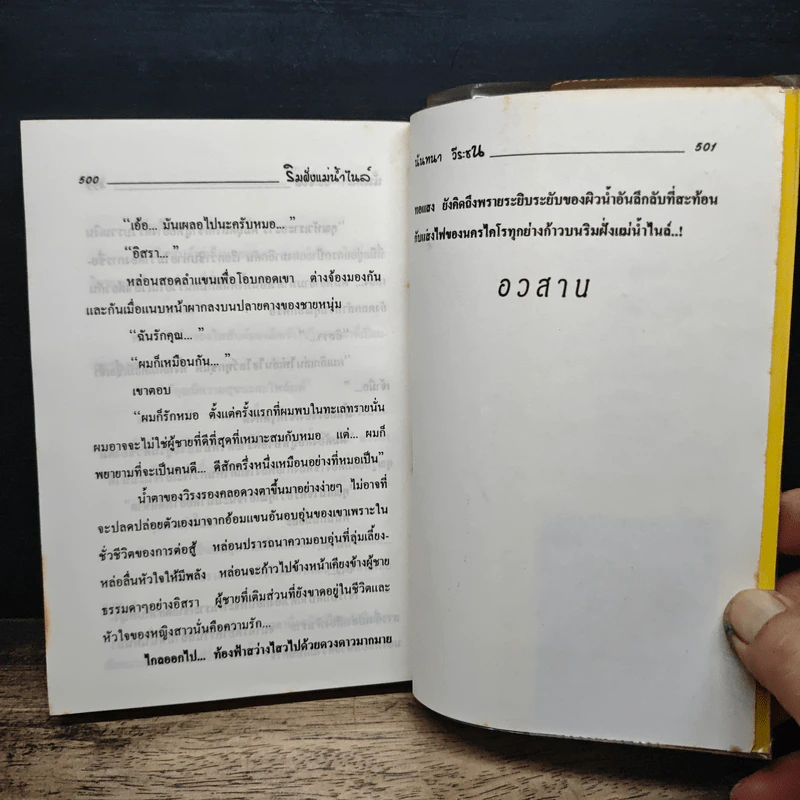 500 ริมฝั่งแม่น้ำไนล์
“เอ้อ... มันเผลอไปนะครับหมอ... ”
“อิสรา... ”
หล่อนสอดลำแขนเพื่อโอบกอดเขา ต่างจ้องมองกัน
และกันเมื่อแนบหน้าผากลงบนปลายคางของชายหนุ่ม
“ฉันรักคุณ... ”
“ผมก็เหมือนกัน... ”
เขาตอบ
“ผมก็รักหมอ ตั้งแต่ครั้งแรกที่ผมพบในทะเลทรายนั่น
ผมอาจจะไม่ใช่ผู้ชายที่ดีที่สุดที่เหมาะสมกับหมอ แต่... ผมก็
พยายามที่จะเป็นคนดี... ดีสักครึ่งหนึ่งเหมือนอย่างที่หมอเป็น”
น้ำตาของวิรงรองคลอดวงตาขึ้นมาอย่างง่ายๆ ไม่อาจที่
จะปลดปล่อยตัวเองมาจากอ้อมแขนอันอบอุ่นของเขาเพราะใน
ชั่วชีวิตของการต่อสู้ หล่อนปรารถนาความอบอุ่นที่ลุ่มเลี้ยง-
หล่อลื่นหัวใจให้มีพลัง หล่อนจะก้าวไปข้างหน้าเคียงข้างผู้ชาย
ธรรมดาๆอย่างอิสรา ผู้ชายที่เติมส่วนที่ยังขาดอยู่ในชีวิตและ
หัวใจของหญิงสาวนั่นคือความรัก...
ไกลออกไป... ท้องฟ้าสว่างไสวไปด้วยดวงดาวมากมาย
นันทนา วีระชน 501
ทอแสง ยังคิดถึงพรายระยิบระยับของผิวน้ำอันลึกลับที่สะท้อน
กับแสงไฟของนครไคโรทุกย่างก้าวบนริมฝั่งแม่น้ำไนล์..!
อวสาน